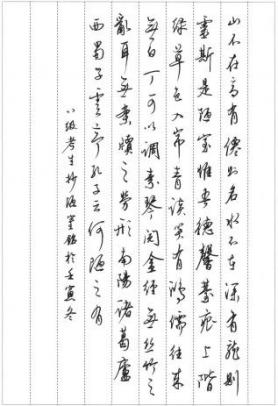 山不在高有僊则名水不在深有龍则
靈斯是陋室惟吾德馨苔痕上階
绿草色入帘青谈笑有鸿儒往来
無白丁可以调素琴阅金經無丝竹之
亂耳無案牍之劳形南陽诸葛廬
西蜀子雲亭孔子云何陋之有
八级考生抄陋室铭於壬寅冬